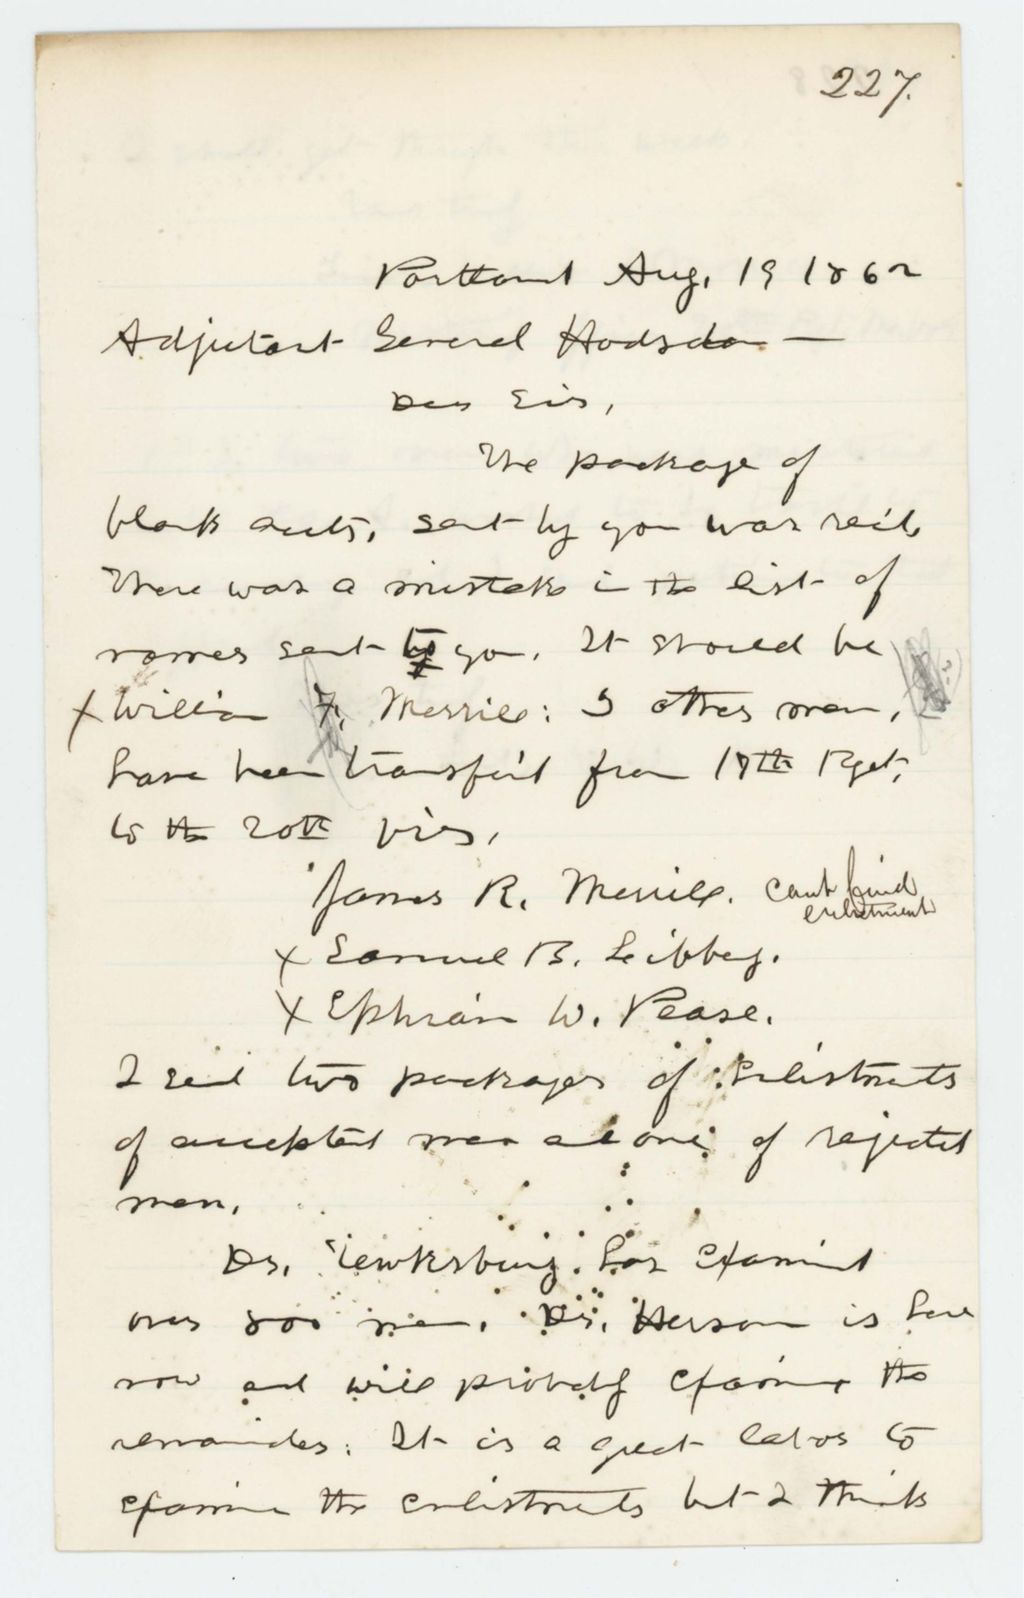 227.
Portland Aug. 19 1862
Adjutant General Hodsdon —
Dear Sir,
The package of
blank sent by you was rec'd.
There was a mistake in the list of
names sent you. It should be
x William F. Merrill: 3 other men,
have been transfer'd from 17th Rgt.
to the 20th viz,
James R. Merrill. cant find
enlistment
x Samuel B. Libbey.
x Ephraim W. Pease.
I send two packages of Enlistments
of accepted men and one of rejected
men.
Dr. Tewksbury has examined
over 800 men. Dr. Herson is here
now and will probably examine the
remainder. It is a great labor to
examine the enlistments but I think